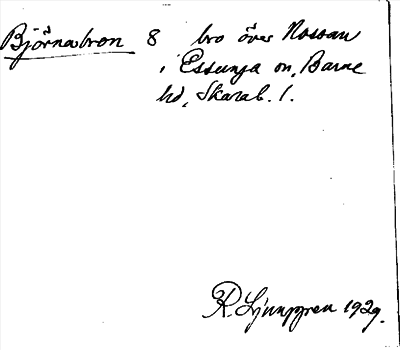 Björnabron 8 bro över Nossan
i Essunga sn, Barne
hd, Skarab. l.
R. Ljunggren 1929.